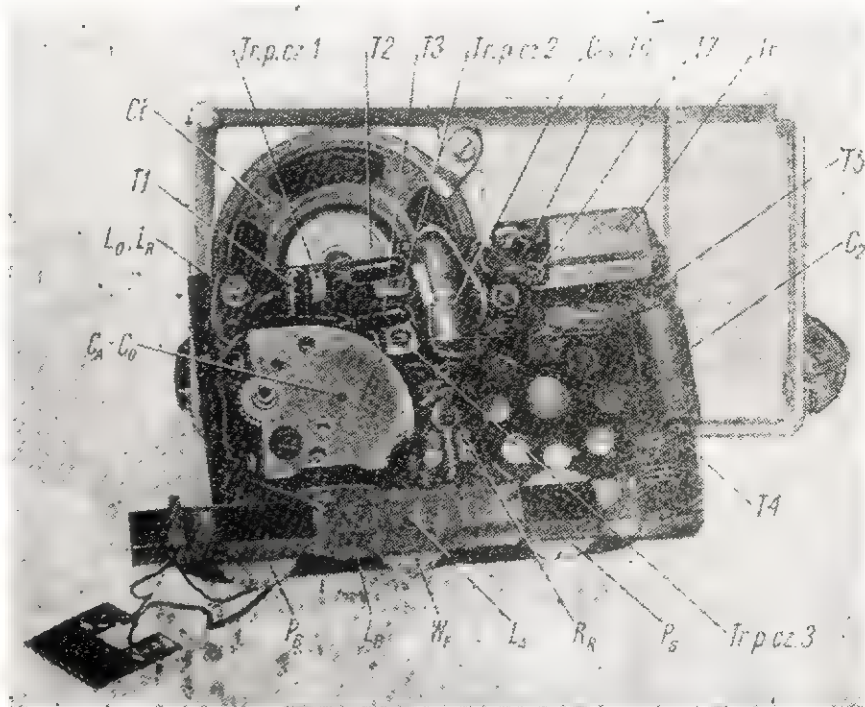 Tr.p.cz.1 T2 T3 Tr.p.cz.2 T7 Tr
Cf
T1
T3
L_O, L_R
C_2
C_A-C_O
T4
P_B L_B W_F L_S R_R P_S Tr.p.cz.3